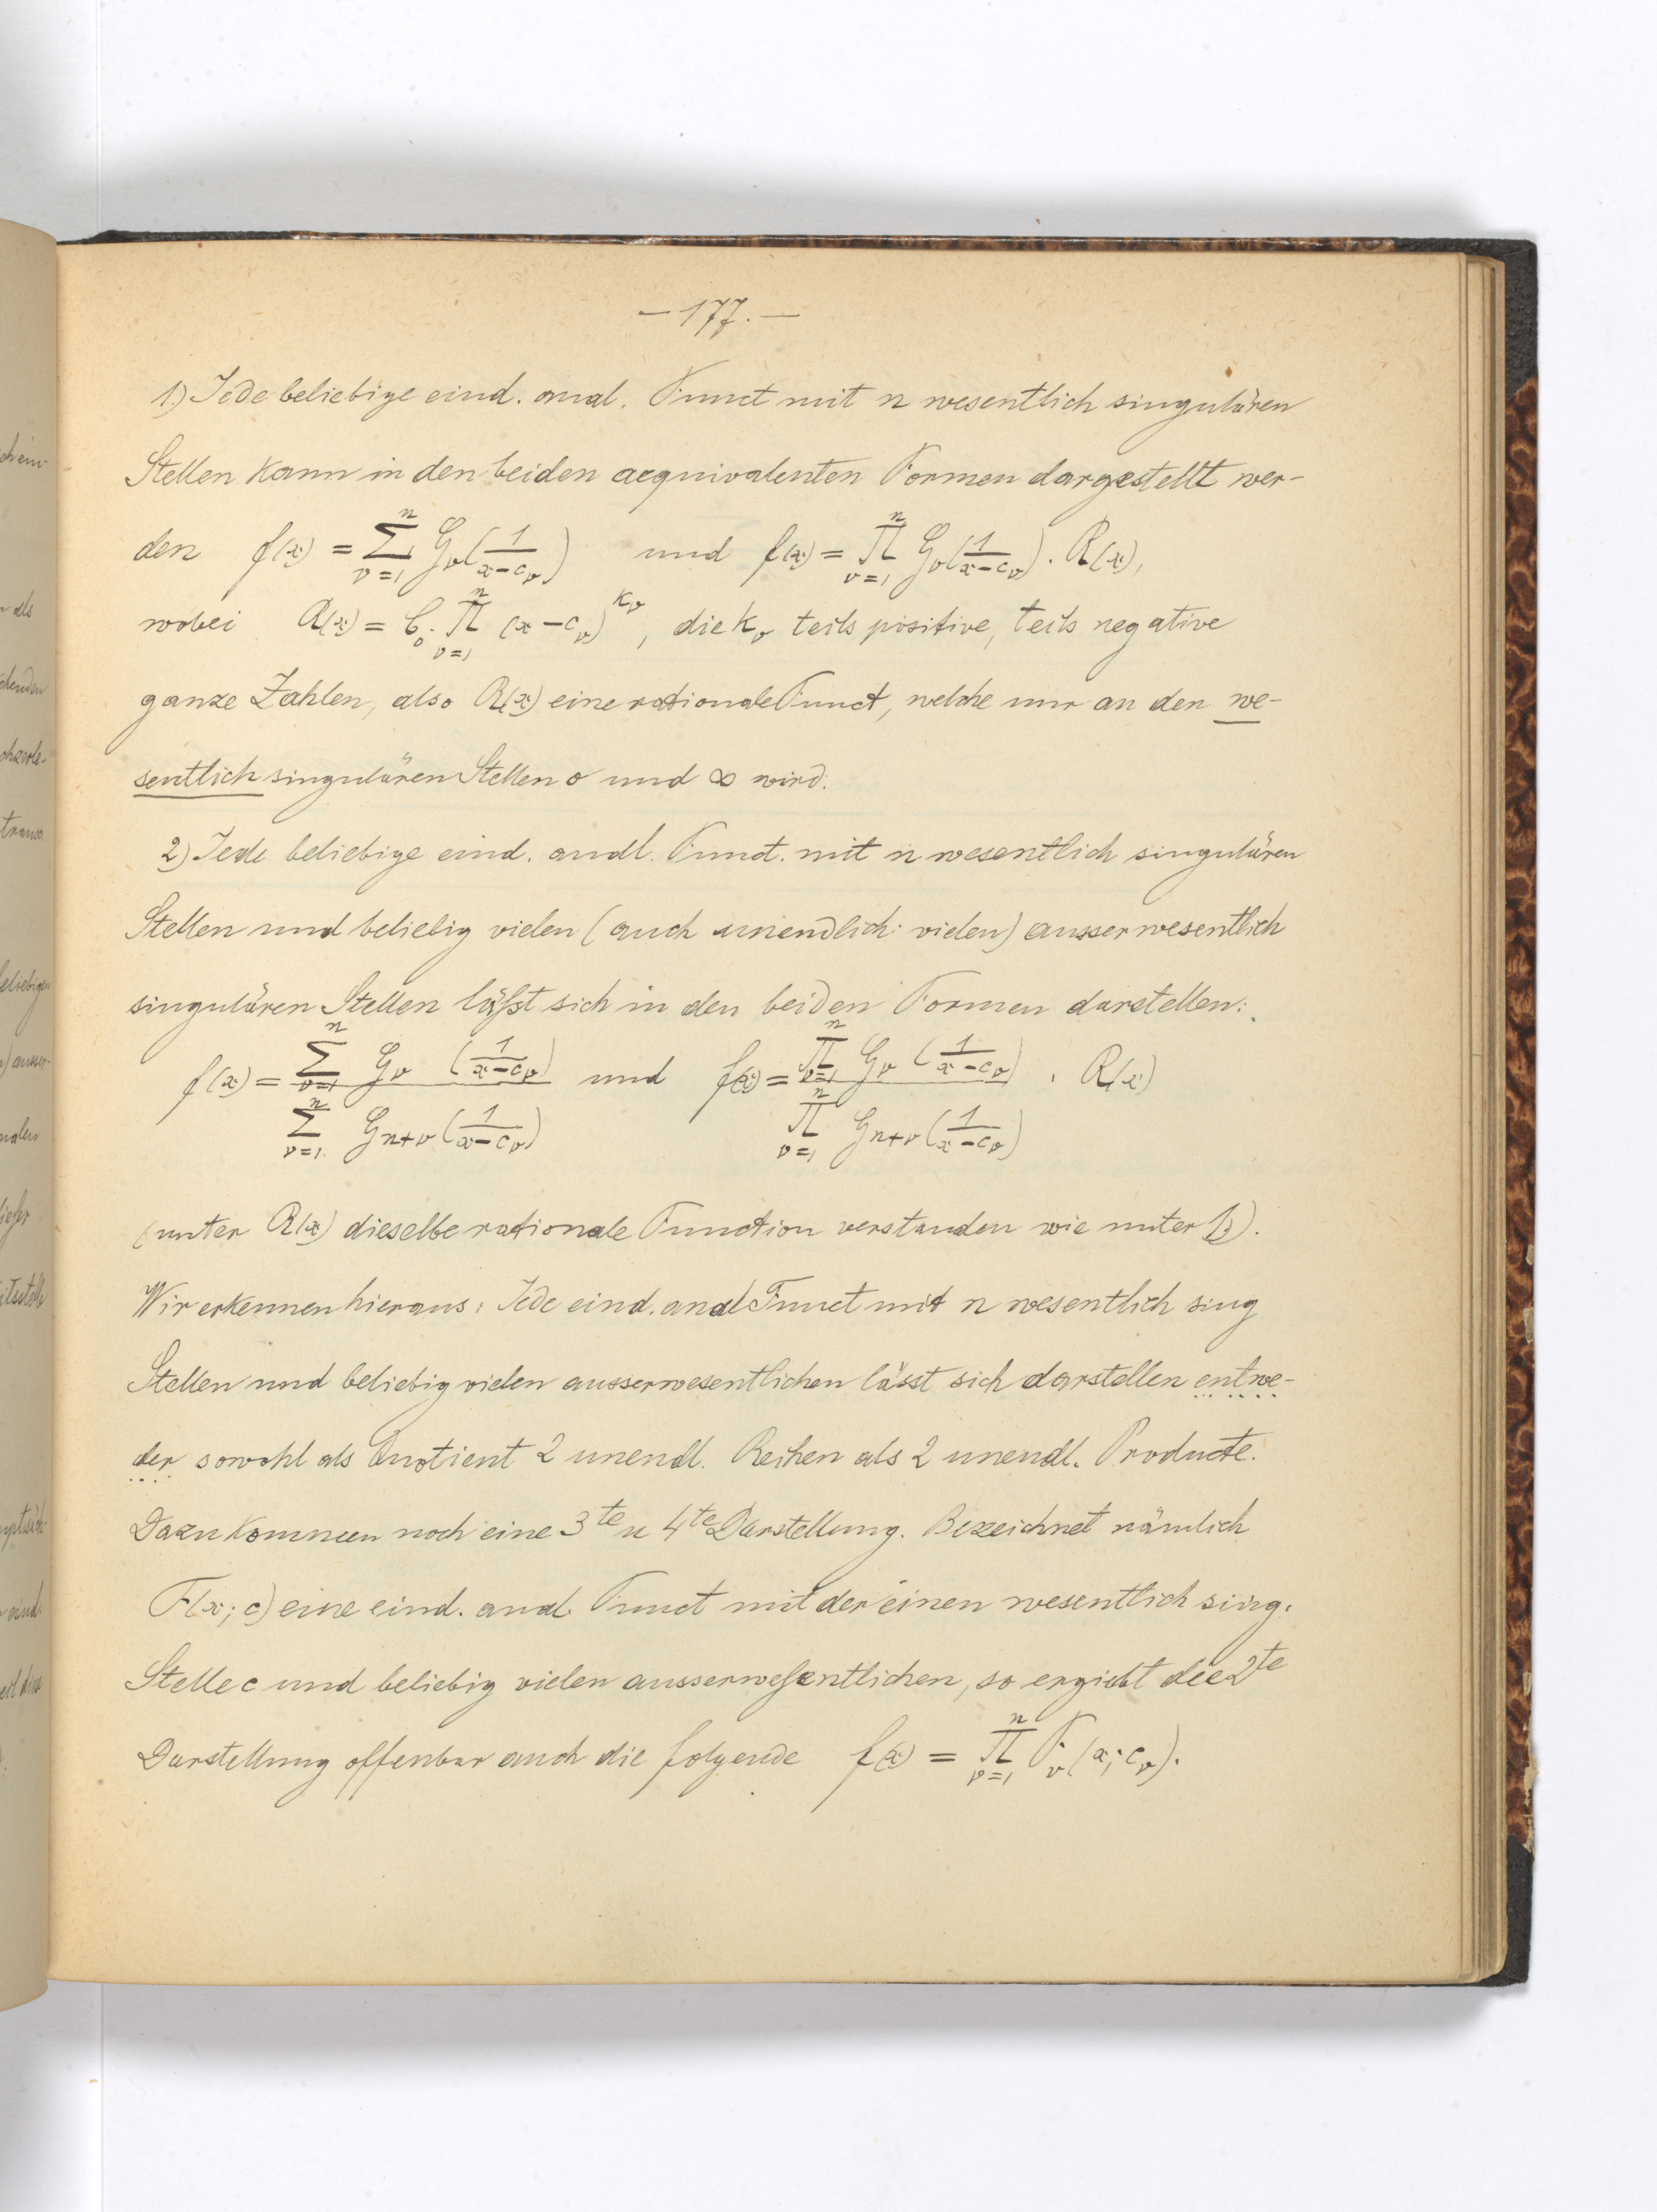 — 177. —
1.) Jede beliebige eind. anal. Funct mit n wesentlich singulären
Stellen kann in den beiden aequivalenten Formen dargestellt wer-
den f(x) = ∑_{ν=1}^{n} G_ν(1/(x−c_ν)) und f(x) = ∏_{ν=1}^{n} G_ν(1/(x−c_ν)) . R(x),
wobei R(x) = C_0 . ∏_{ν=1}^{n} (x−c_ν)^{k_ν}, die k_ν teils positive, teils negative
ganze Zahlen, also R(x) eine rationale Funct, welche nur an den we-
sentlich singulären Stellen o und ∞ wird.
2) Jede beliebige eind. anal. Funct. mit n wesentlich singulären
Stellen und beliebig vielen (auch unendlich vielen) ausserwesentlich
singulären Stellen läßt sich in den beiden Formen darstellen:
f(x) = ∑_{ν=1}^{n} G_ν (1/(x−c_ν)) / ∑_{ν=1}^{n} G_{n+ν}(1/(x−c_ν)) und f(x) = ∏_{ν=1}^{n} G_ν (1/(x−c_ν)) / ∏_{ν=1}^{n} G_{n+ν}(1/(x−c_ν)) . R(x)
(unter R(x) dieselbe rationale Function verstanden wie unter 1.)).
Wir erkennen hieraus: Jede eind. anal Funct mit n wesentlich sing
Stellen und beliebig vielen ausserwesentlichen lässt sich darstellen entwe-
der sowohl als Quotient 2 unendl. Reihen als 2 unendl. Producte.
Dazu kommen noch eine 3te u 4te Darstellung. Bezeichnet nämlich
F(x; c) eine eind. anal. Funct mit der einen wesentlich sing.
Stelle c und beliebig vielen ausserwesentlichen, so ergiebt die 2te
Darstellung offenbar auch die folgende f(x) = ∏_{ν=1}^{n} F_ν(x; c_ν).